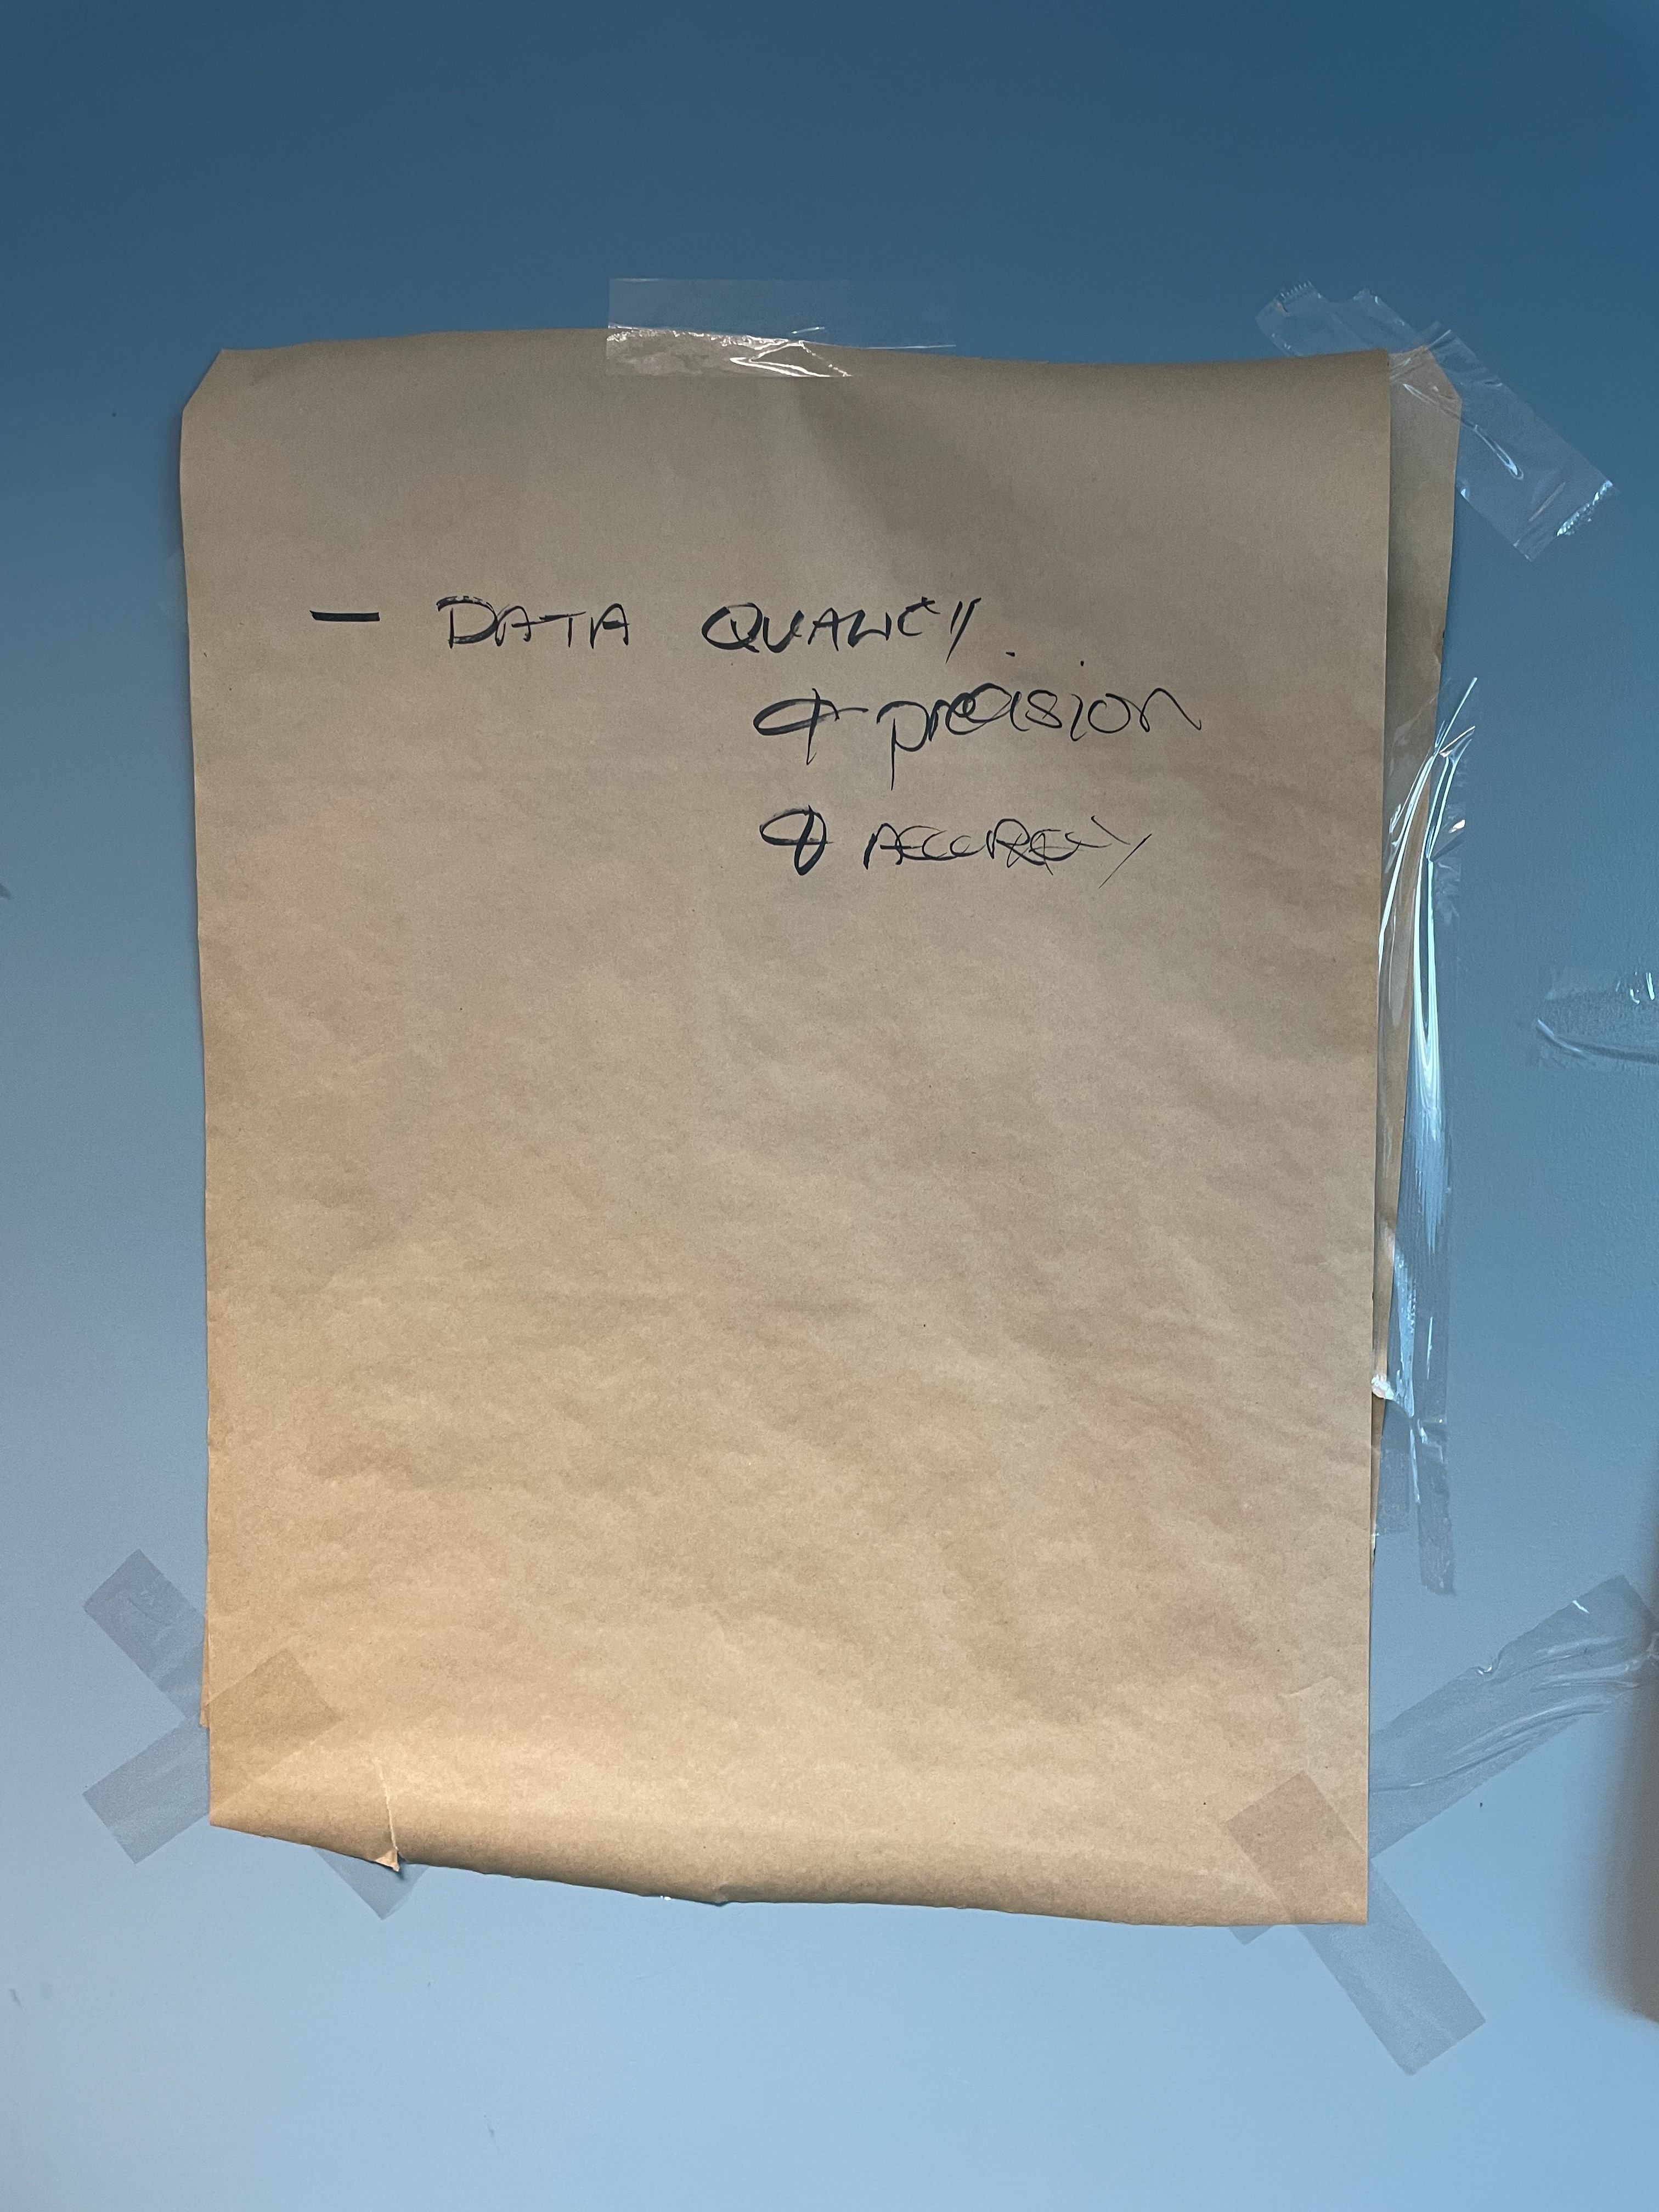 - DATA QUALITY
+ precision
+ ACCURACY